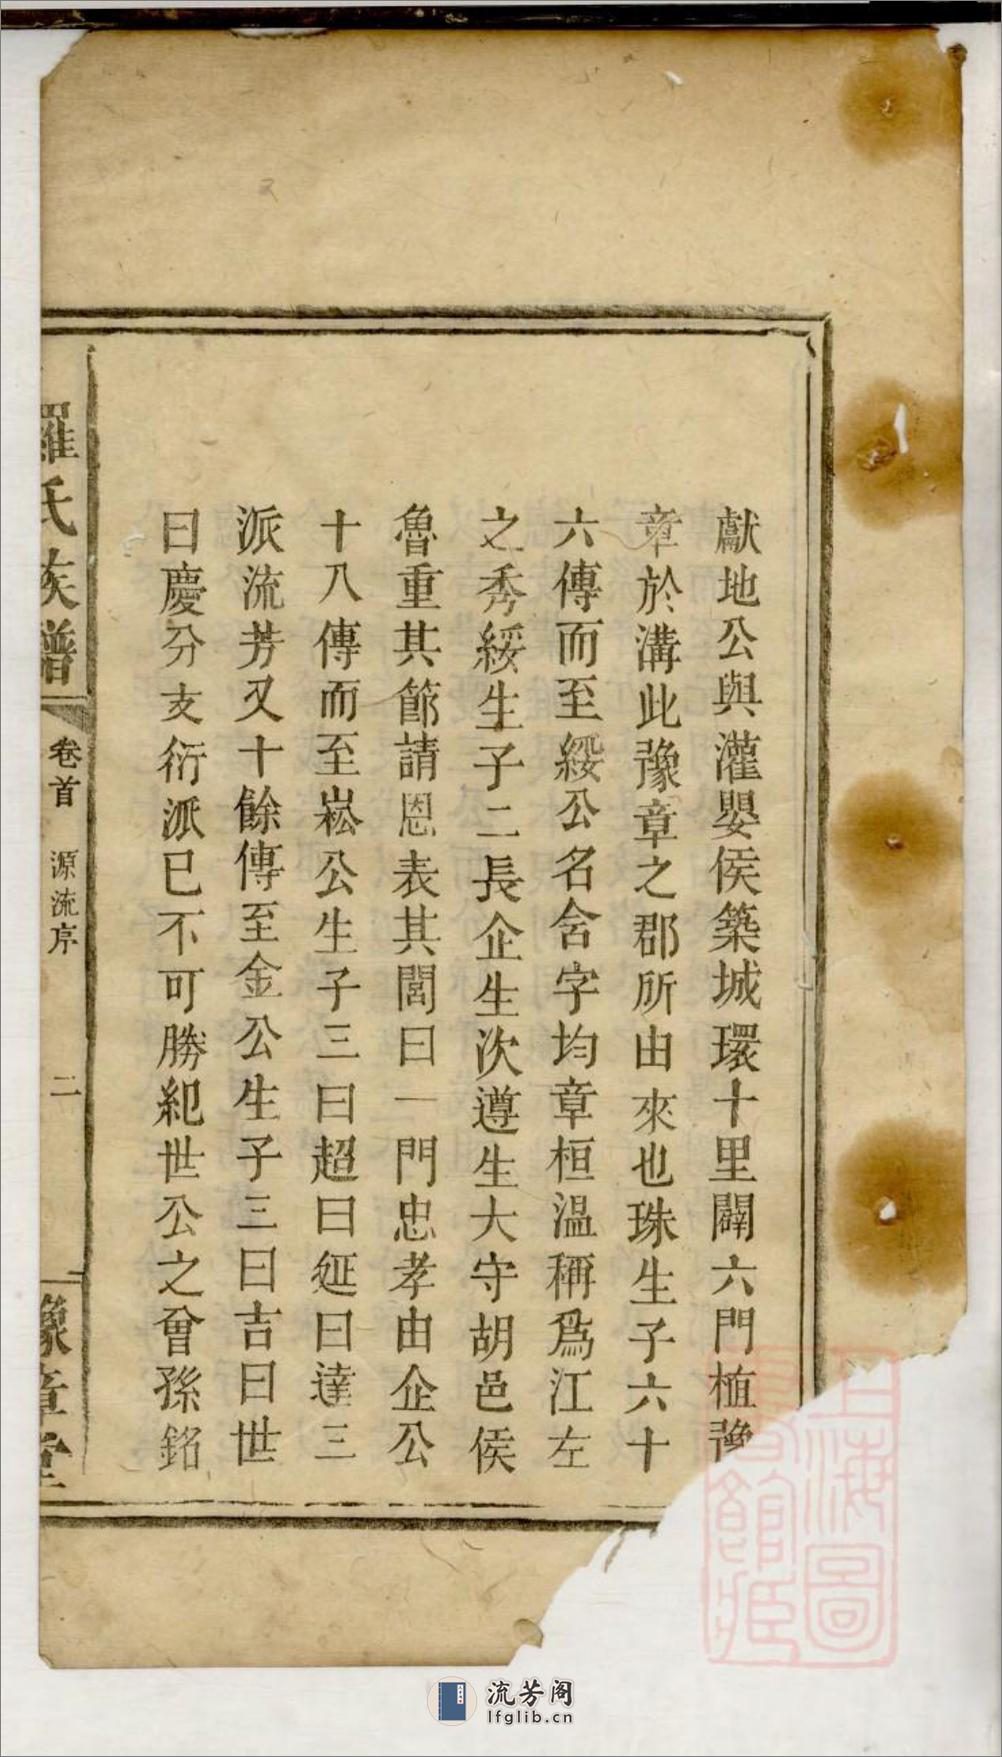 獻地公與灌嬰侯築城環十里闢六門植豫
章於溝此豫章之郡所由來也珠生子六十
六傳而至綏公名含字均章桓温稱爲江左
之秀綏生子二長企生次遵生大守胡邑侯
魯重其節請恩表其閭曰一門忠孝由企公
十八傳而至崧公生子三曰超曰延曰達三
派流芳又十餘傳至金公生子三曰吉曰世
曰慶分支衍派已不可勝紀世公之曾孫銘
羅氏族譜
卷首
源流序
二
豫章堂
上海圖
書館藏
流芳阁
lfglib.cn